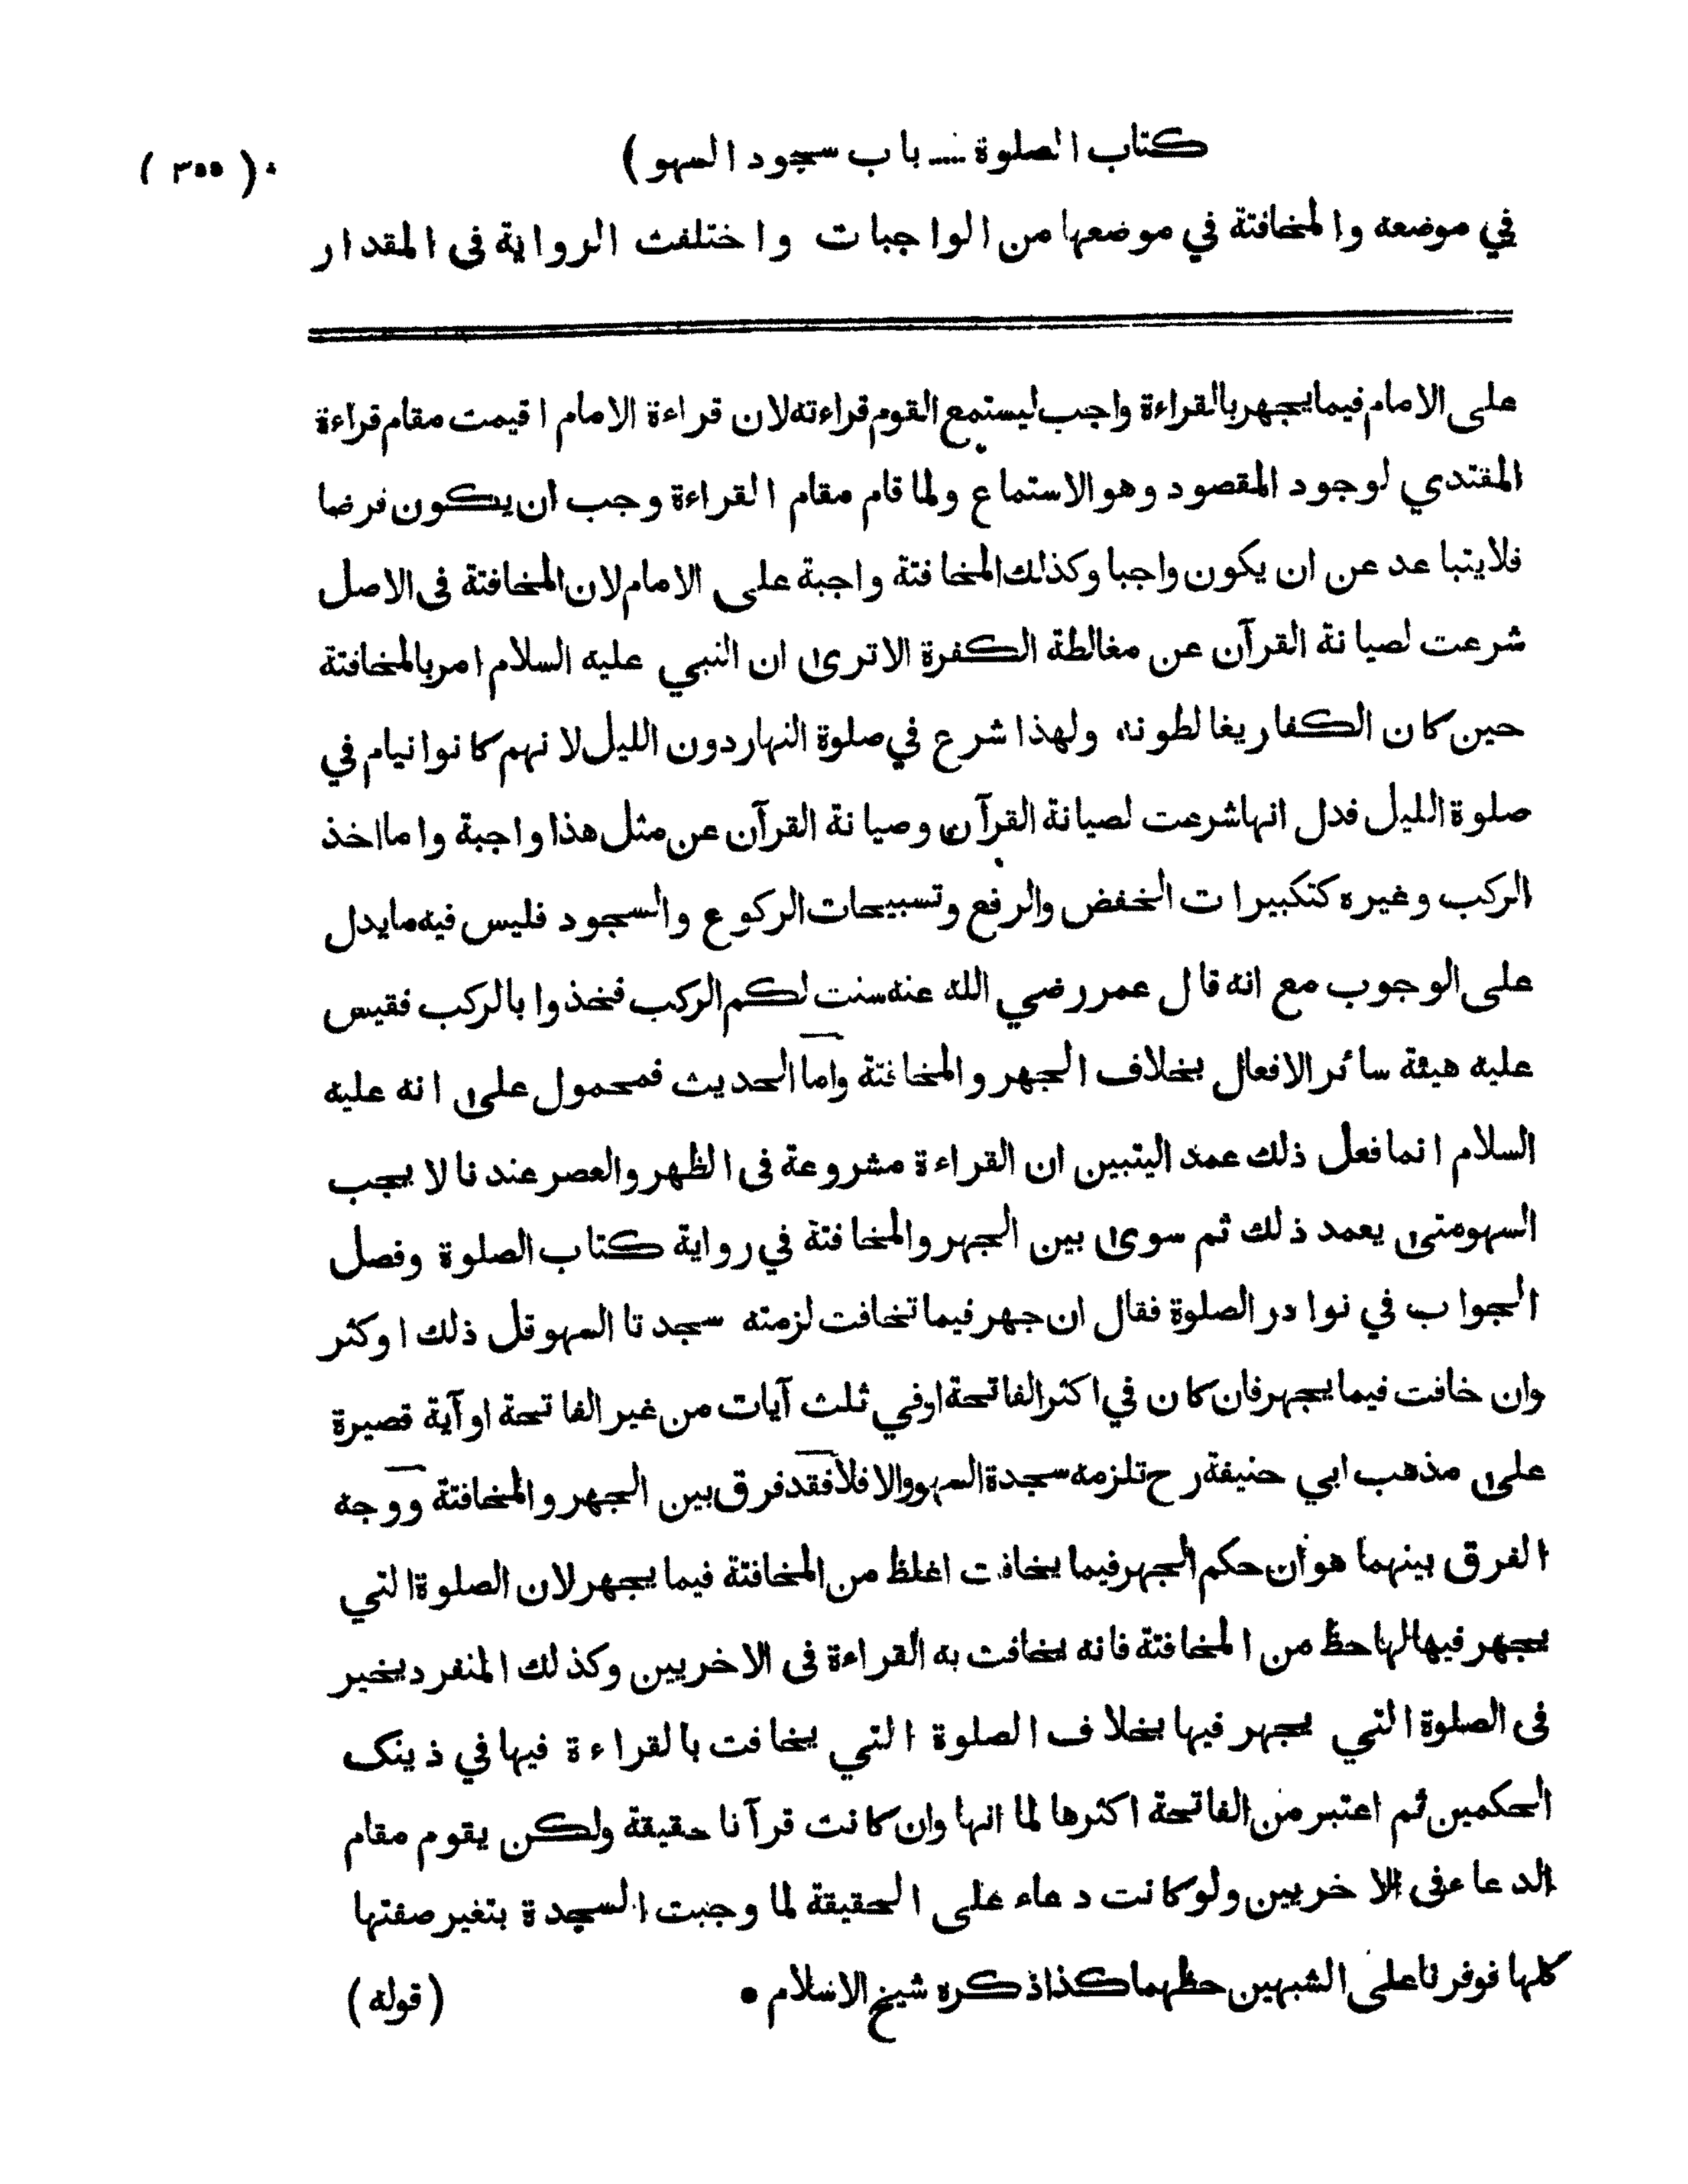 كتاب الصلوة ــــ باب سجود السهو ) ( ٣٥٥ )
في موضعه والمخافتة في موضعها من الواجبات واختلفت الرواية فى المقدار
على الامام فيما يجهر بالقراءة واجب ليستمع القوم قراءته لان قراءة الامام اقيمت مقام قراءة
المقتدي لوجود المقصود وهو الاستماع ولما قام مقام القراءة وجب ان يكون فرضا
فلا يتباعد عن ان يكون واجبا وكذلك المخافتة واجبة على الامام لان المخافتة فى الاصل
شرعت لصيانة القرآن عن مغالطة الكفرة الاترى ان النبي عليه السلام امر بالمخافتة
حين كان الكفار يغالطونه ولهذا شرع في صلوة النهار دون الليل لانهم كانوا نيام في
صلوة الليل فدل انها شرعت لصيانة القرآن وصيانة القرآن عن مثل هذا واجبة واما اخذ
الركب وغيره كتكبيرات الخفض والرفع وتسبيحات الركوع والسجود فليس فيه ما يدل
على الوجوب مع انه قال عمر رضي الله عنه سنت لكم الركب فخذوا بالركب فقيس
عليه هيئة سائر الافعال بخلاف الجهر والمخافتة واما الحديث فمحمول على انه عليه
السلام انما فعل ذلك عمد اليتبين ان القراءة مشروعة فى الظهر والعصر عندنا لا يجب
السهو متى يعمد ذلك ثم سوى بين الجهر والمخافتة في رواية كتاب الصلوة وفصل
الجواب في نوادر الصلوة فقال ان جهر فيما تخافت لزمته سجدتا السهو قل ذلك او كثر
وان خافت فيما يجهر فان كان في اكثر الفاتحة اوفي ثلث آيات من غير الفاتحة او آية قصيرة
على مذهب ابي حنيفة رح تلزمه سجدة السهو والا فلا فقد فرق بين الجهر والمخافتة ووجه
الفرق بينهما هو ان حكم الجهر فيما يخافت اغلظ من المخافتة فيما يجهر لان الصلوة التي
يجهر فيها لها حظ من المخافتة فانه يخافت به القراءة فى الاخريين وكذلك المنفرد يخير
فى الصلوة التي يجهر فيها بخلاف الصلوة التي يخافت بالقراءة فيها في ذينك
الحكمين ثم اعتبر من الفاتحة اكثرها لما انها وان كانت قرآنا حقيقة ولكن يقوم مقام
الدعاء فى الاخريين ولو كانت دعاء على الحقيقة لما وجبت السجدة بتغير صفتها
كلها فوفرنا على الشبهين حظهما كذا ذكره شيخ الاسلام • (قوله)